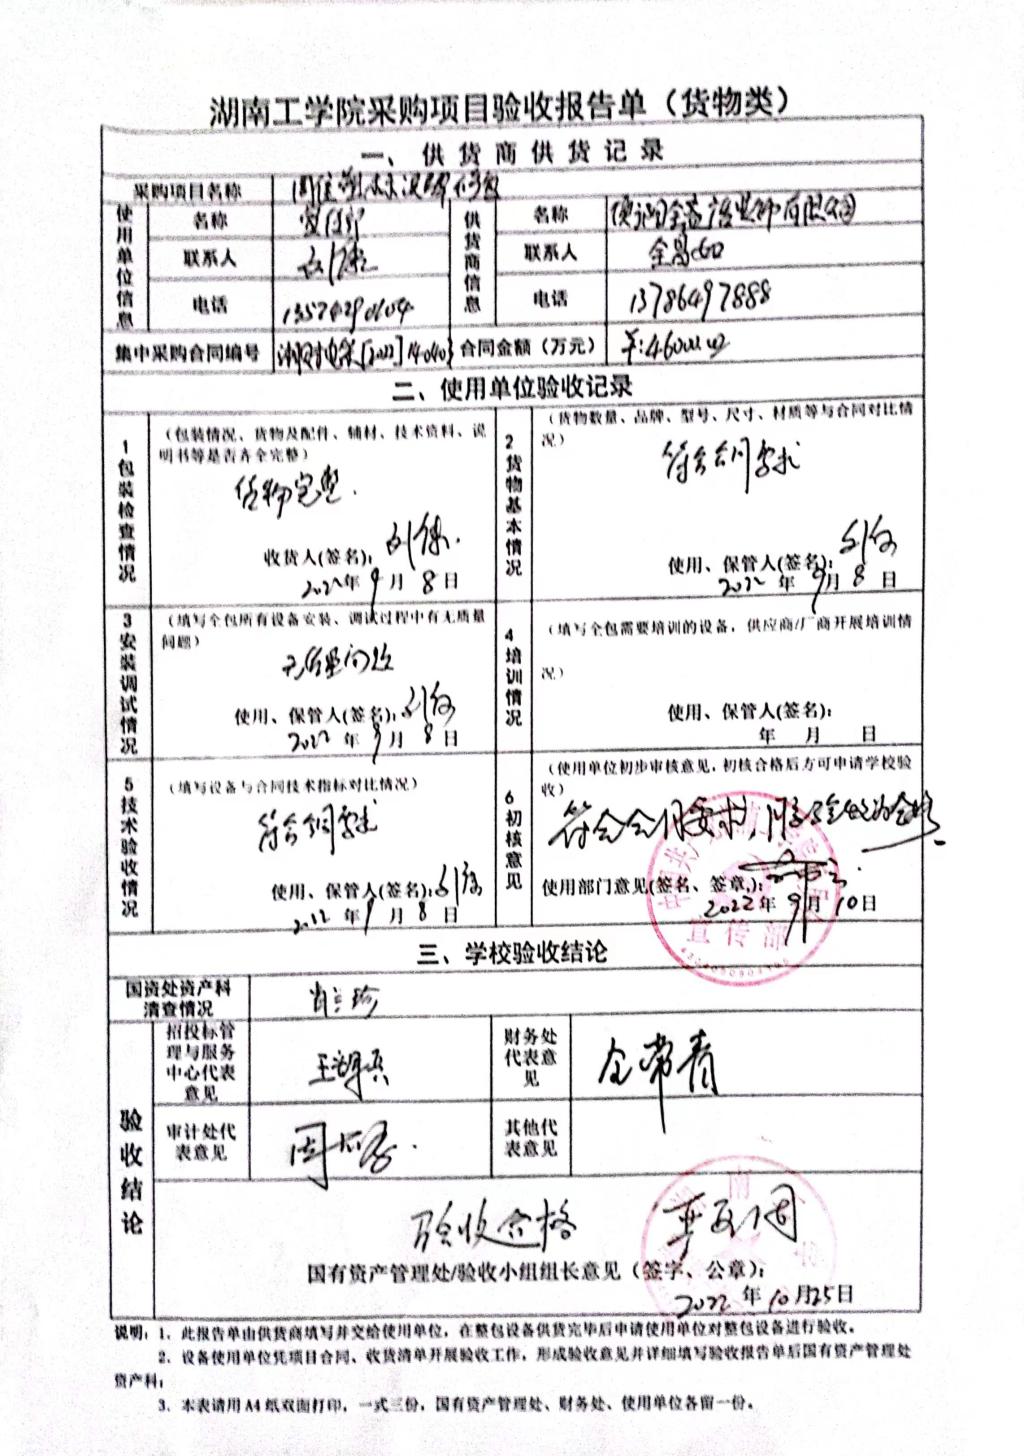 湖南工学院采购项目验收报告单（货物类）
一、供货商供货记录
采购项目名称
使用单位信息
名称
联系人
电话
供货商信息
名称
联系人
电话 13786497888
集中采购合同编号
合同金额（万元）
二、使用单位验收记录
1包装检查情况
（包装情况、货物及配件、辅材、技术资料、说
明书等是否齐全完整）
货物完整.
收货人(签名)：
2022年9月8日
2货物基本情况
（货物数量、品牌、型号、尺寸、材质等与合同对比情
况）
符合合同要求
使用、保管人(签名)：
2022年9月8日
3安装调试情况
（填写全包所有设备安装、调试过程中有无质量
问题）
无质量问题
使用、保管人(签名)：
2022年9月8日
4培训情况
（填写全包需要培训的设备，供应商/厂商开展培训情
况）
使用、保管人(签名)：
年 月 日
5技术验收情况
（填写设备与合同技术指标对比情况）
符合合同要求
使用、保管人(签名)：
2022年9月8日
6初核意见
（使用单位初步审核意见，初核合格后方可申请学校验
收）
符合合同要求，同意验收为合格
使用部门意见(签名、签章)：
2022年9月10日
宣传部
三、学校验收结论
国资处资产科
清查情况
验收结论
招投标管
理与服务
中心代表
意见
财务处
代表意
见
全常青
审计处代
表意见
其他代
表意见
验收合格
国有资产管理处/验收小组组长意见（签字、公章）：
2022年10月25日
说明：1、此报告单由供货商填写并交给使用单位，在整包设备供货完毕后申请使用单位对整包设备进行验收。
2、设备使用单位凭项目合同、收货清单开展验收工作，形成验收意见并详细填写验收报告单后国有资产管理处
资产科；
3、本表请用A4纸双面打印，一式三份，国有资产管理处、财务处、使用单位各留一份。